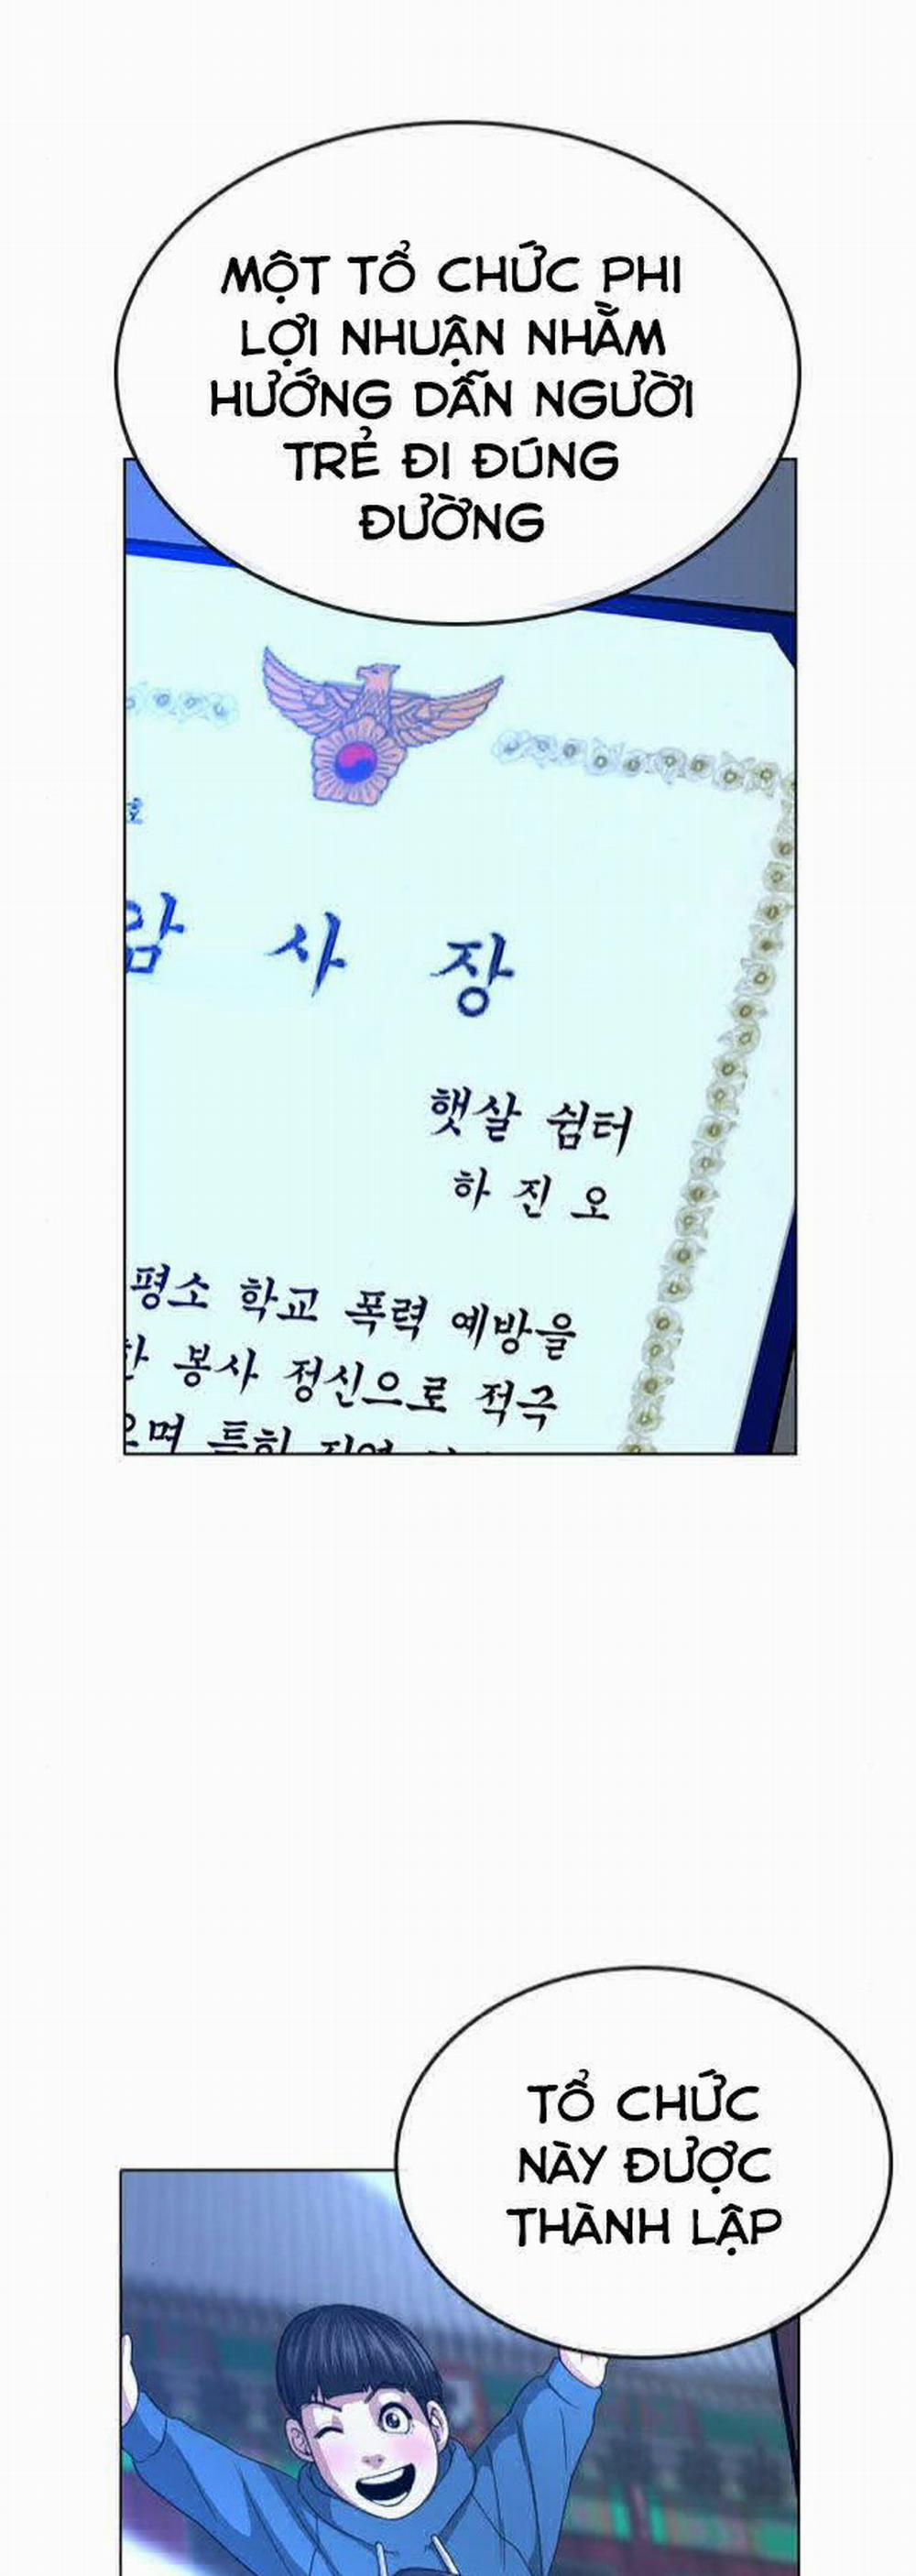 MỘT TỔ CHỨC PHI
LỢI NHUẬN NHẰM
HƯỚNG DẪN NGƯỜI
TRẺ ĐI ĐÚNG
ĐƯỜNG
호
사 장
햇살 쉼터
하 진 오
평소 학교 폭력 예방을
봉사 정신으로 적극
으며 특히 지역
TỔ CHỨC
NÀY ĐƯỢC
THÀNH LẬP